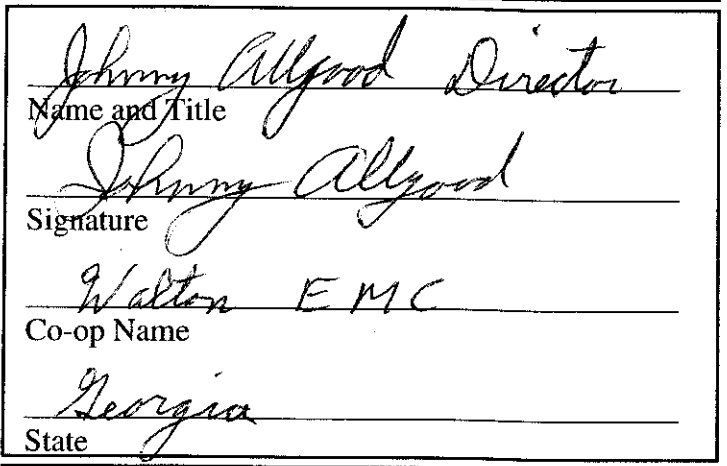 Johnny Allgood Director
Name and Title
Johnny Allgood
Signature
Walton EMC
Co-op Name
Georgia
State